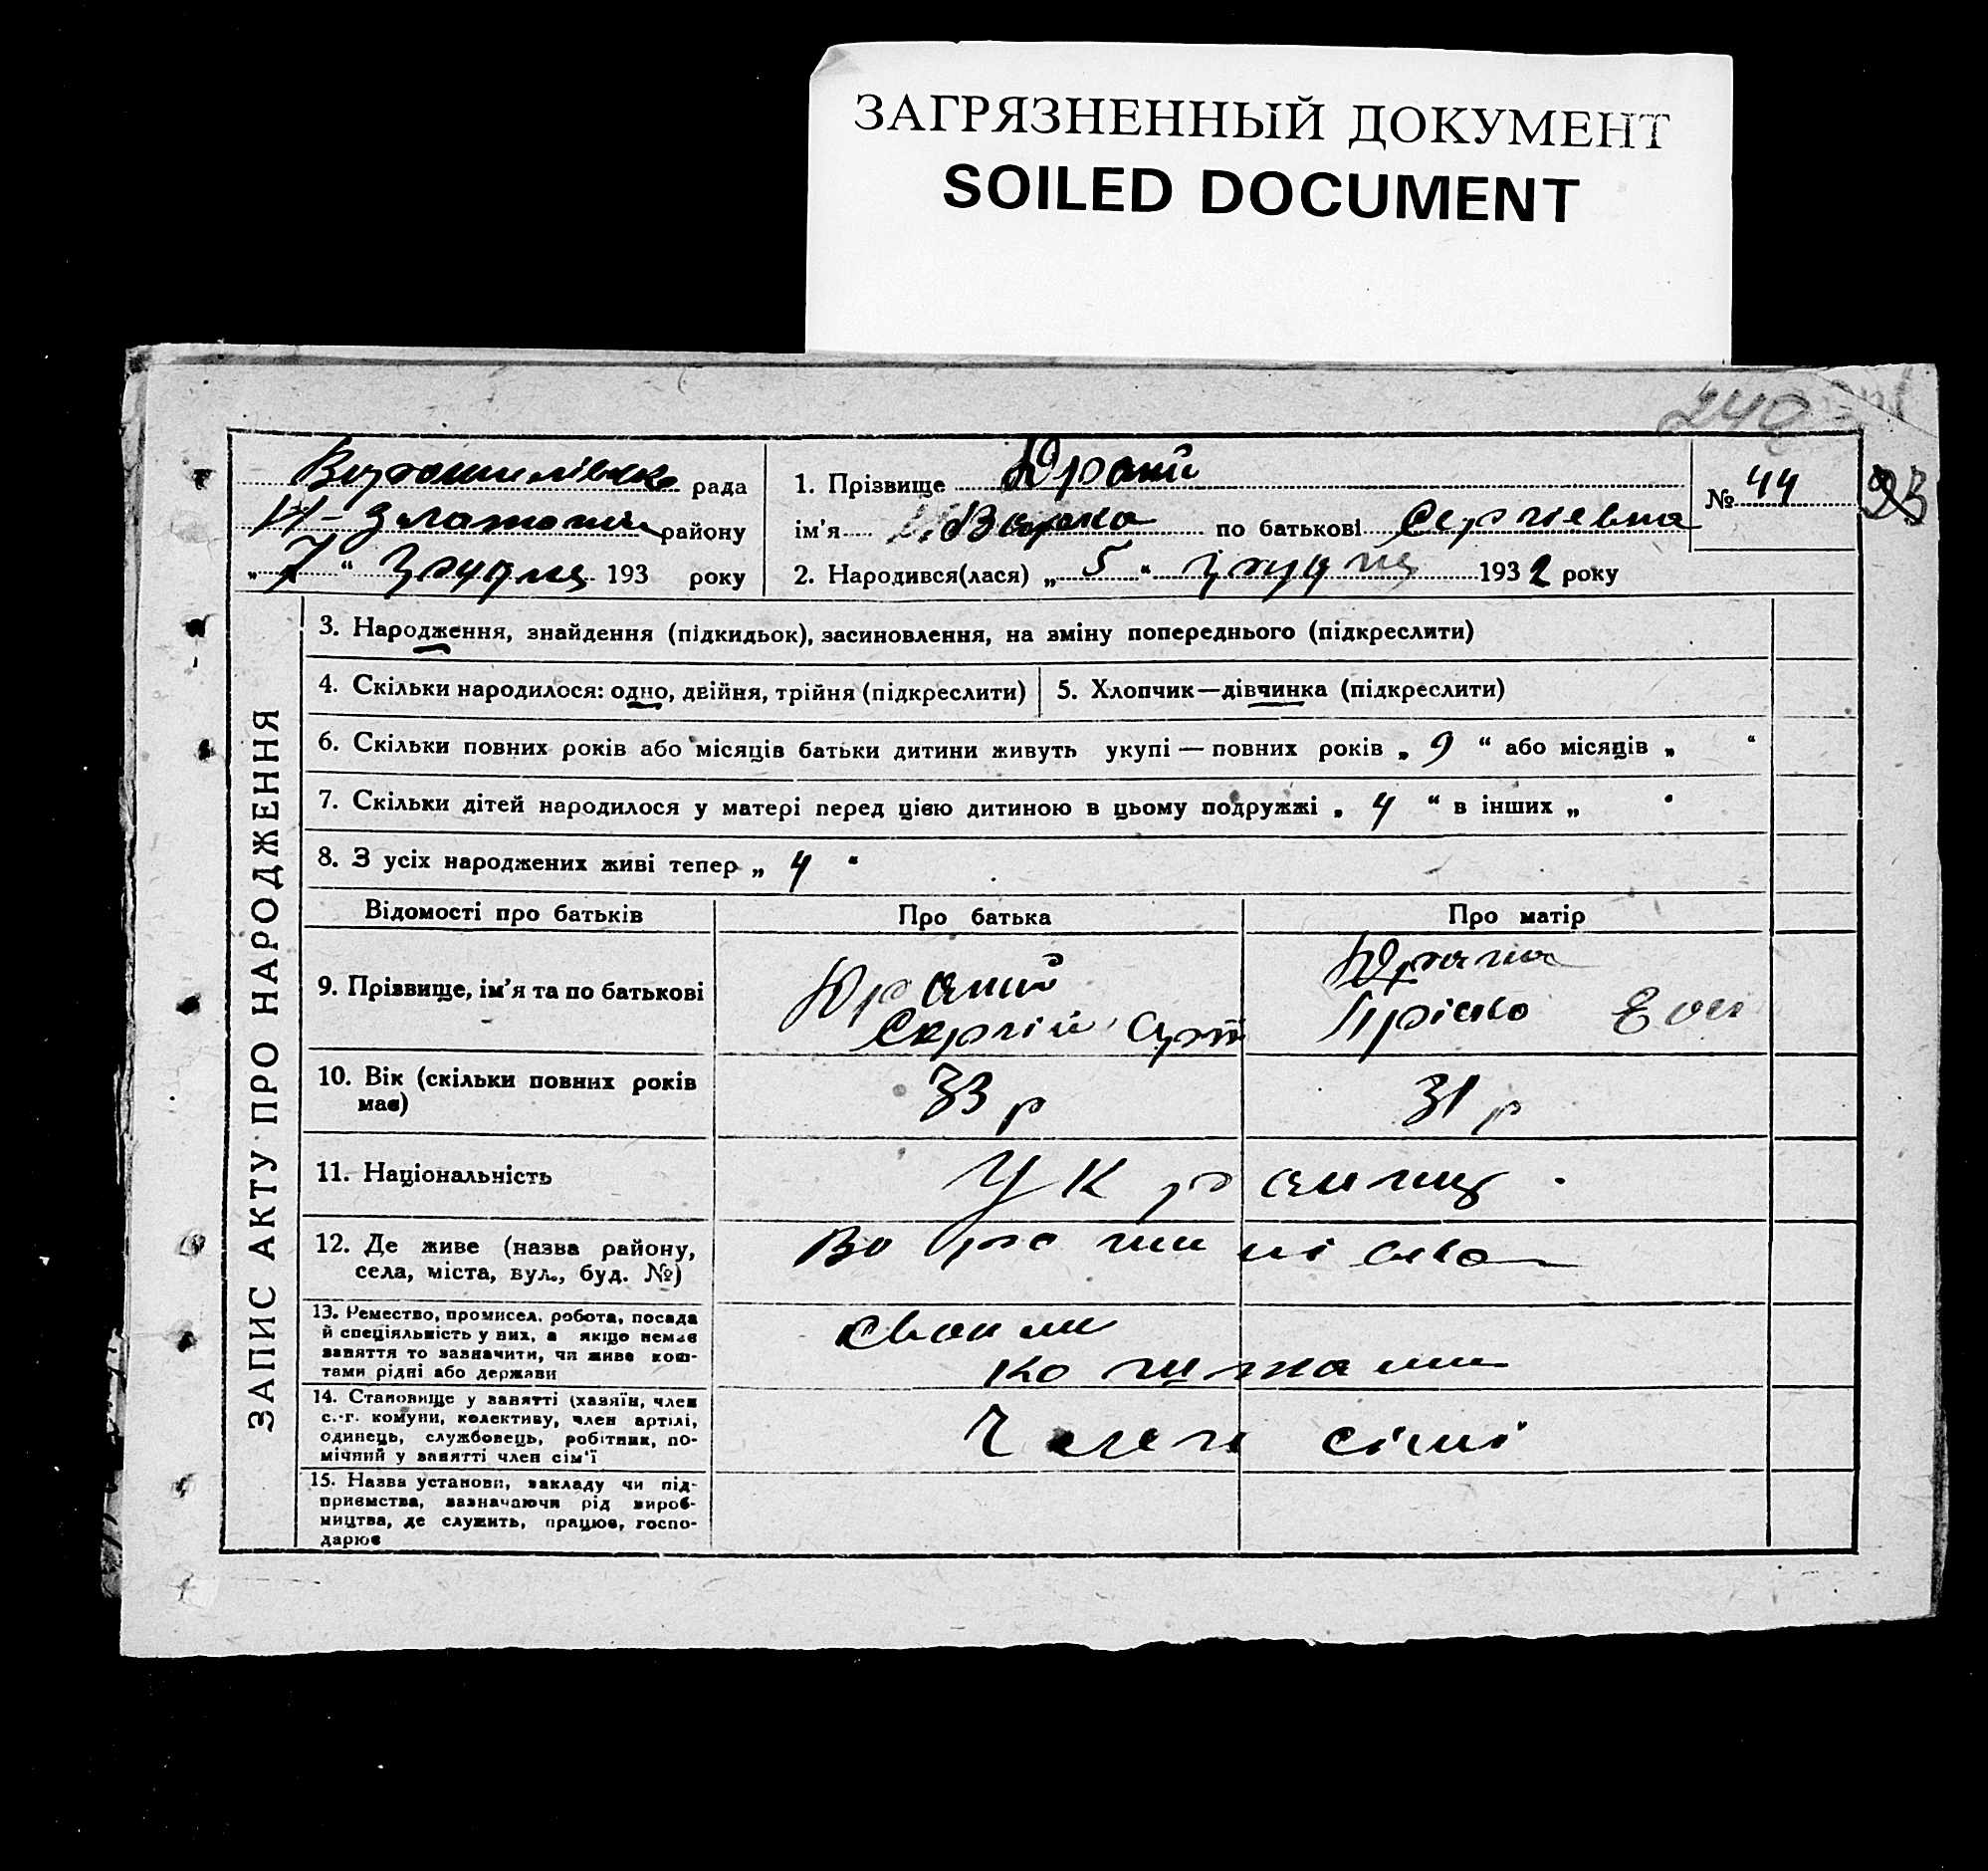 ЗАГРЯЗНЕННЫЙ ДОКУМЕНТ
SOILED DOCUMENT
рада
району
„ 7 “ грудня 193 року
1. Прізвище
№ 44
ім'я Варка по батькові Сергієвна
2. Народився(лася) „ 5 “ грудня 1932 року
ЗАПИС АКТУ ПРО НАРОДЖЕННЯ
3. Народження, знайдення (підкидьок), засиновлення, на зміну попереднього (підкреслити)
4. Скільки народилося: одно, двійня, трійня (підкреслити)
5. Хлопчик—дівчинка (підкреслити)
6. Скільки повних років або місяців батьки дитини живуть укупі — повних років „ 9 “ або місяців „ “
7. Скільки дітей народилося у матері перед цією дитиною в цьому подружжі „ 4 “ в інших „ “
8. З усіх народжених живі тепер „ 4 “
Відомості про батьків
Про батька
Про матір
9. Прізвище, ім'я та по батькові
Сергій
10. Вік (скільки повних років
має)
33 р
31 р
11. Національність
12. Де живе (назва району,
села, міста, вул., буд. №)
13. Ремество, промисел, робота, посада
й спеціяльність у них, а якщо немає
заняття то зазначити, чи живе кош-
тами рідні або держави
14. Становище у занятті (хазяїн, член
с.-г. комуни, колективу, член артілі,
одинець, службовець, робітник, по-
мічний у занятті член сім'ї
Член сімі
15. Назва установи, закладу чи під-
приємства, зазначаючи рід вироб-
ництва, де служить, працює, госпо-
дарює